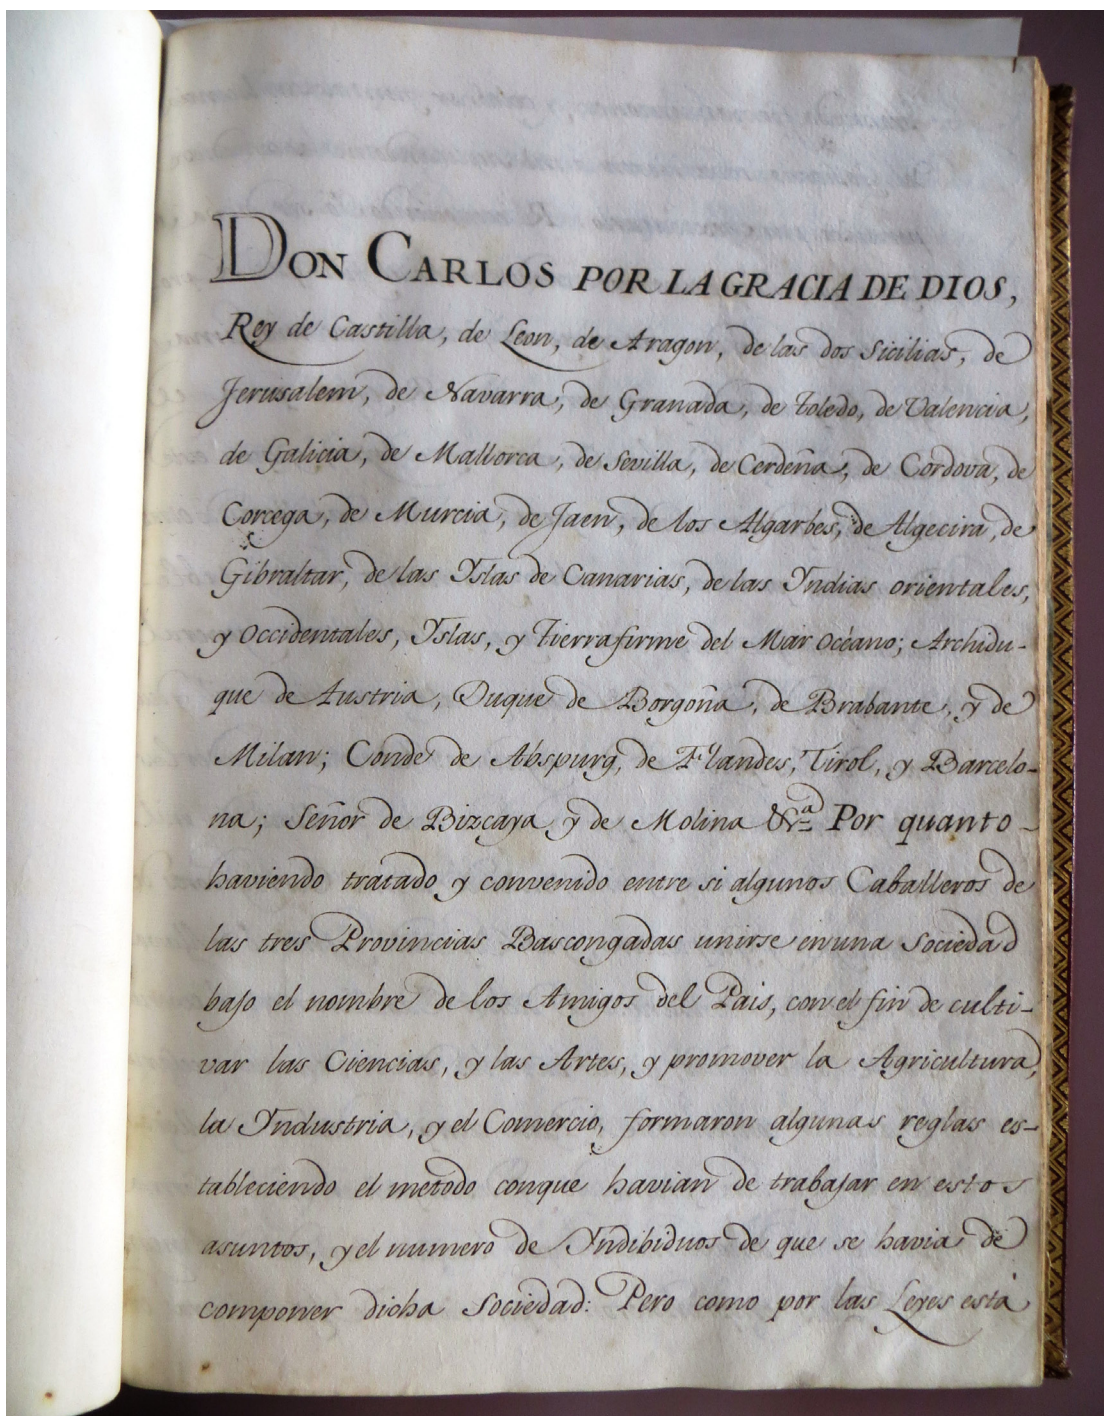 DON CARLOS POR LA GRACIA DE DIOS,
Rey de Castilla, de Leon, de Aragon, de las dos Sicilias, de
Jerusalem, de Navarra, de Granada, de Toledo, de Valencia,
de Galicia, de Mallorca, de Sevilla, de Cerdeña, de Cordova, de
Corcega, de Murcia, de Jaen, de los Algarbes, de Algecira, de
Gibraltar, de las Yslas de Canarias, de las Yndias orientales,
y Occidentales, Yslas, y Tierrafirme del Mar Océano; Archidu-
que de Austria, Duque de Borgoña, de Brabante, y de
Milan; Conde de Abspurg, de Flandes, Tirol, y Barcelo-
na; Señor de Bizcaya y de Molina &ª Por quanto
haviendo tratado y convenido entre si algunos Caballeros de
las tres Provincias Bascongadas unirse en una Sociedad
bajo el nombre de los Amigos del Pais, con el fin de culti-
var las Ciencias, y las Artes, y promover la Agricultura,
la Yndustria, y el Comercio, formaron algunas reglas es-
tableciendo el metodo conque havian de trabajar en estos
asuntos, y el numero de Yndibiduos de que se havia de
componer dicha Sociedad: Pero como por las Leyes está